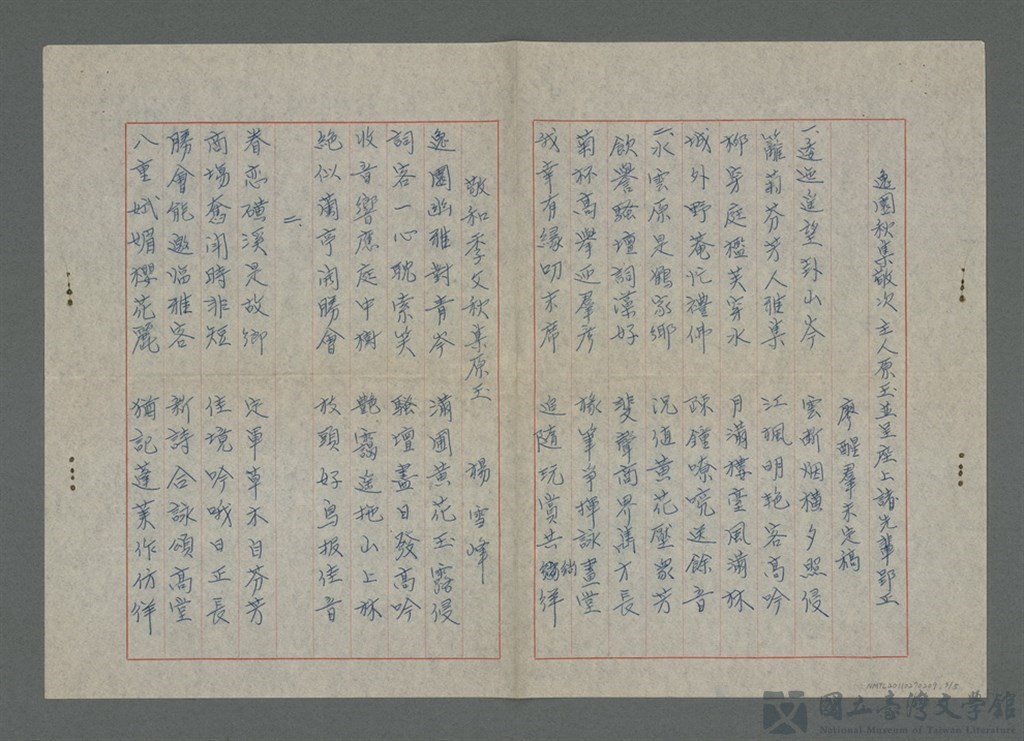 逸園秋集敬次主人原玉並呈座上諸先輩郢正
廖醒羣未定稿
一、逶迤遙望卦山岑 雲斷烟橫夕照侵
籬菊芬芳人雅集 江楓明艷客高吟
柳穿庭檻芙穿水 月滿樓臺風滿林
城外野菴忙禮佛 疎鐘嘹亮送餘音
二、水雲原是鶴家鄉 況值黃花壓眾芳
飲譽騷壇詞藻好 斐聲商界雋才長
菊杯高擧迎羣彥 椽筆爭揮詠畫堂
我幸有緣叨末席 追隨玩賞共徜徉
敬和季文秋集原玉 楊雪峰
逸園幽雅對青岑 滿圃黃花玉露侵
詞客一心耽索笑 騷壇盡日發高吟
收音響應庭中樹 艷靄遙拖山上林
絕似蘭亭開勝會 枝頭好鳥報佳音
二、
眷恋磺溪是故鄉 定軍草木自芬芳
商場奮鬥時非短 佳境吟哦日正長
勝會能邀臨雅客 新詩合詠頌高堂
八重娬媚櫻花麗 猶記蓬萊作仿徉
NMTL20110270209
國立臺灣文學館
National Museum of Taiwan Literature